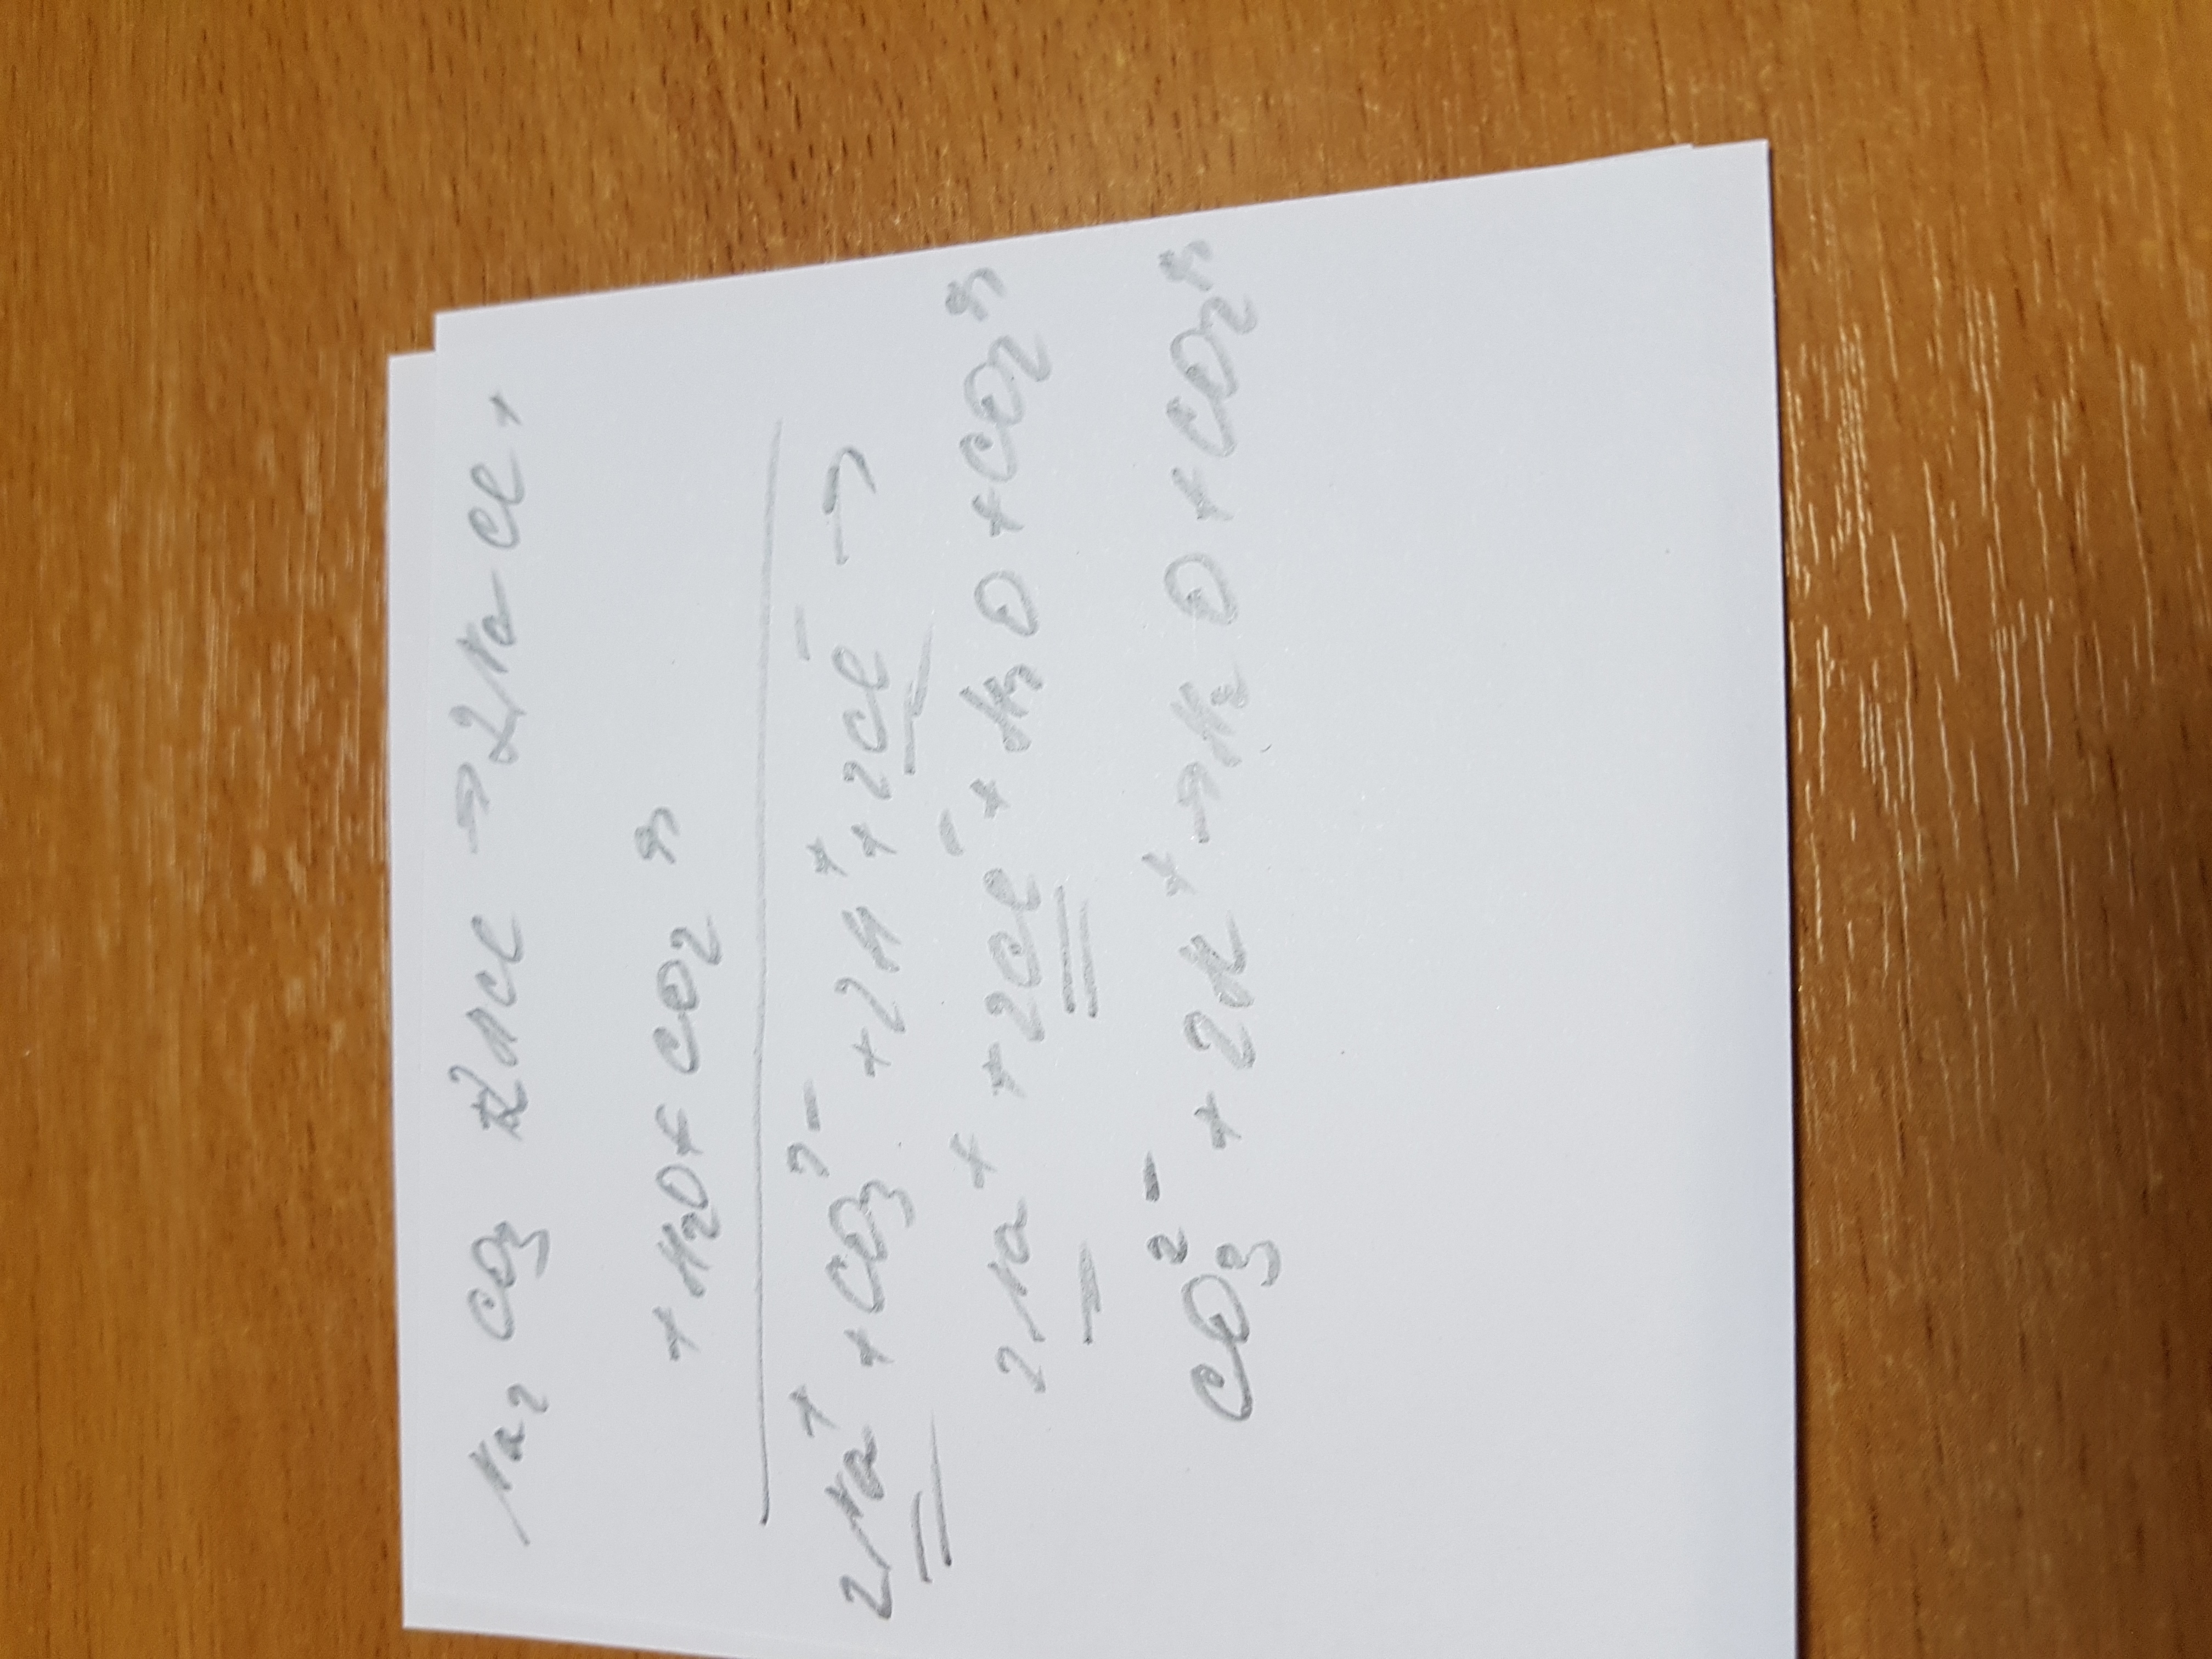 Na₂CO₃ + 2HCl → 2NaCl +
+ H₂O + CO₂ ↑
2Na⁺ + CO₃²⁻ + 2H⁺ + 2Cl⁻ →
2Na⁺ + 2Cl⁻ + H₂O + CO₂ ↑
CO₃²⁻ + 2H⁺ → H₂O + CO₂ ↑